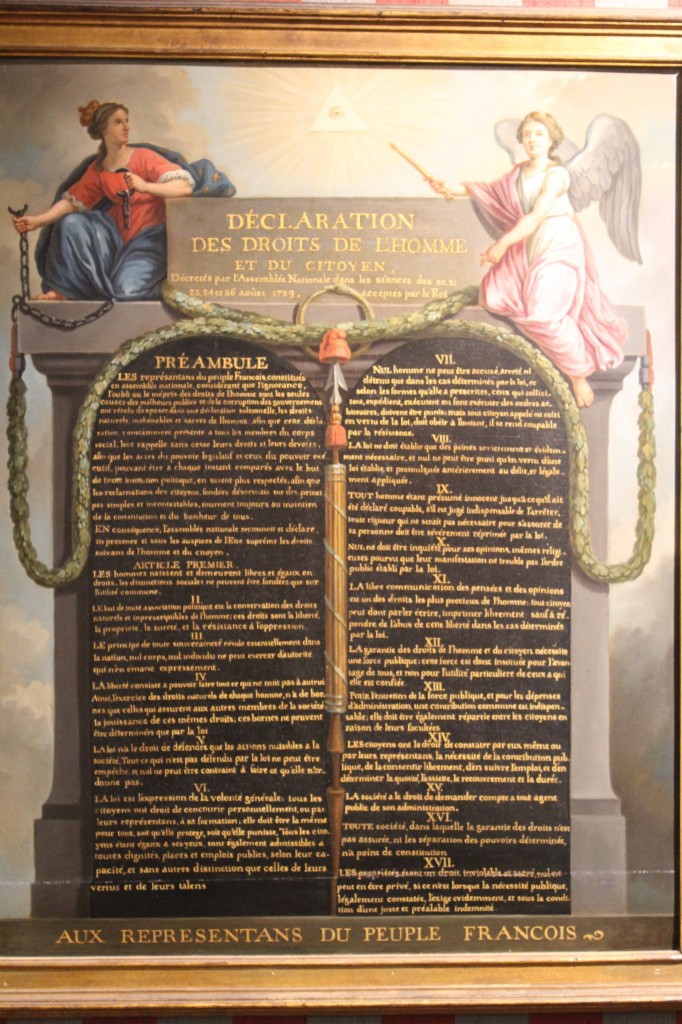 DÉCLARATION
DES DROITS DE L'HOMME
ET DU CITOYEN,
Décretés par l'Assemblée Nationale dans les séances des 20, 21
23, 24 et 26 août 1789, acceptés par le Roi
PRÉAMBULE
LES représentans du peuple Francois, constitués
en assemblée nationale, considérant que l'ignorance,
l'oubli ou le mépris des droits de l'homme sont les seules
causes des malheurs publics et de la corruption des gouvernemens
ont résolu d'exposer dans une déclaration solemnelle, les droits
naturels, inaliénables et sacrés de l'homme; afin que cette décla-
ration, constamment présente a tous les membres du corps
social, leur rappelle sans cesse leurs droits et leurs devoirs;
afin que les actes du pouvoir législatif et ceux du pouvoir exé-
cutif, pouvant être a chaque instant comparés avec le but
de toute institution politique, en soient plus respectés; afin que
les reclamations des citoyens, fondées désormais sur des princi-
pes simples et incontestables, tournent toujours au maintien
de la constitution et du bonheur de tous.
EN conséquence, l'assemblée nationale reconnoit et déclare,
en presence et sous les auspices de l'Etre suprême les droits
suivans de l'homme et du citoyen.
ARTICLE PREMIER.
LES hommes naissent et demeurent libres et égaux en
droits, les distinctions sociales ne peuvent être fondées que sur
l'utilité commune.
II.
LE but de toute association politique est la conservation des droits
naturels et imprescriptibles de l'homme; ces droits sont la liberté,
la propriété, la sureté, et la résistance à l'oppression.
III.
LE principe de toute souveraineté réside essentiellement dans
la nation, nul corps, nul individu ne peut exercer d'autorité
qui n'en émane expressément.
IV.
LA liberté consiste a pouvoir faire tout ce qui ne nuit pas à autrui
Ainsi, l'exercice des droits naturels de chaque homme, n'a de bor-
nes que celles qui assurent aux autres membres de la société
la jouissance de ces mêmes droits; ces bornes ne peuvent
être déterminées que par la loi
V.
LA loi n'a le droit de défendre que les actions nuisibles a la
société. Tout ce qui n'est pas défendu par la loi ne peut être
empêché, et nul ne peut être contraint à faire ce qu'elle n'or-
donne pas.
VI.
LA loi est l'expression de la volonté générale; tous les
citoyens ont droit de concourir personnellement, ou par
leurs représentans, à sa formation; elle doit être la même
pour tous, soit qu'elle protege, soit qu'elle punisse, Tous les cito-
yens étant égaux à ses yeux, sont également admissibles a
toutes dignités, places et emplois publics, selon leur ca-
pacité, et sans autres distinction que celles de leurs
vertus et de leurs talens
VII.
NUL homme ne peut être accusé, arreté, ni
détenu que dans les cas déterminés par la loi, et
selon les formes qu'elle a prescrites, ceux qui sollici-
tent, expédient, exécutent ou font exécuter des ordres ar-
bitraires, doivent être punis; mais tout citoyen appelé ou saisi
en vertu de la loi, doit obéir a l'instant, il se rend coupable
par la résistance.
VIII.
LA loi ne doit établir que des peines strictement et évidem-
ment nécessaire, et nul ne peut être puni qu'en vertu d'une
loi établie, et promulguée antérierement au délit, et légale-
ment appliquée.
IX.
TOUT homme étant présumé innocent jusqu'a ce qu'il ait
été déclaré coupable, s'il est jugé indispensable de l'arrêter,
toute rigueur qui ne serait pas nécessaire pour s'assurer de
sa personne doit être sévèrement réprimée par la loi.
X.
NUL ne doit être inquiété pour ses opinions, mêmes religi-
euses pourvu que leur manifestation ne trouble pas l'ordre
public établi par la loi.
XI.
LA libre communication des pensées et des opinions
est un des droits les plus precieux de l'homme; tout citoyen
peut donc parler écrire, imprimer librement; sauf à ré-
pondre de l'abus de cette liberté dans les cas déterminés
par la loi.
XII.
LA garantie des droits de l'homme et du citoyen nécessite
une force publique; cette force est donc instituée pour l'avan-
tage de tous, et non pour l'utilité particuliere de ceux a qui
elle est confiée.
XIII.
Pour l'entretien de la force publique, et pour les dépenses
d'administration, une contribution commune est indispen-
sable; elle doit être également répartie entre les citoyens en
raison de leurs facultées
XIV.
LES citoyens ont le droit de constater par eux même ou
par leurs représentans, la nécessité de la contribution pub-
lique, de la consentir librement, d'en suivre l'emploi, et d'en
déterminer la quotité, l'assiette, le recouvrement et la durée.
XV.
LA société a le droit de demander compte a tout agent
public de son administration.
XVI.
TOUTE société, dans laquelle la garantie des droits n'est
pas assurée, ni les séparation des pouvoirs déterminée,
n'a point de constitution
XVII.
LES propriétés étant un droit inviolable et sacré, nul ne
peut en être privé, si ce n'est lorsque la nécessité publique,
légalement constatée, l'exige evidemment, et sous la condi-
tion d'une juste et préalable indemnité.
AUX REPRESENTANS DU PEUPLE FRANCOIS